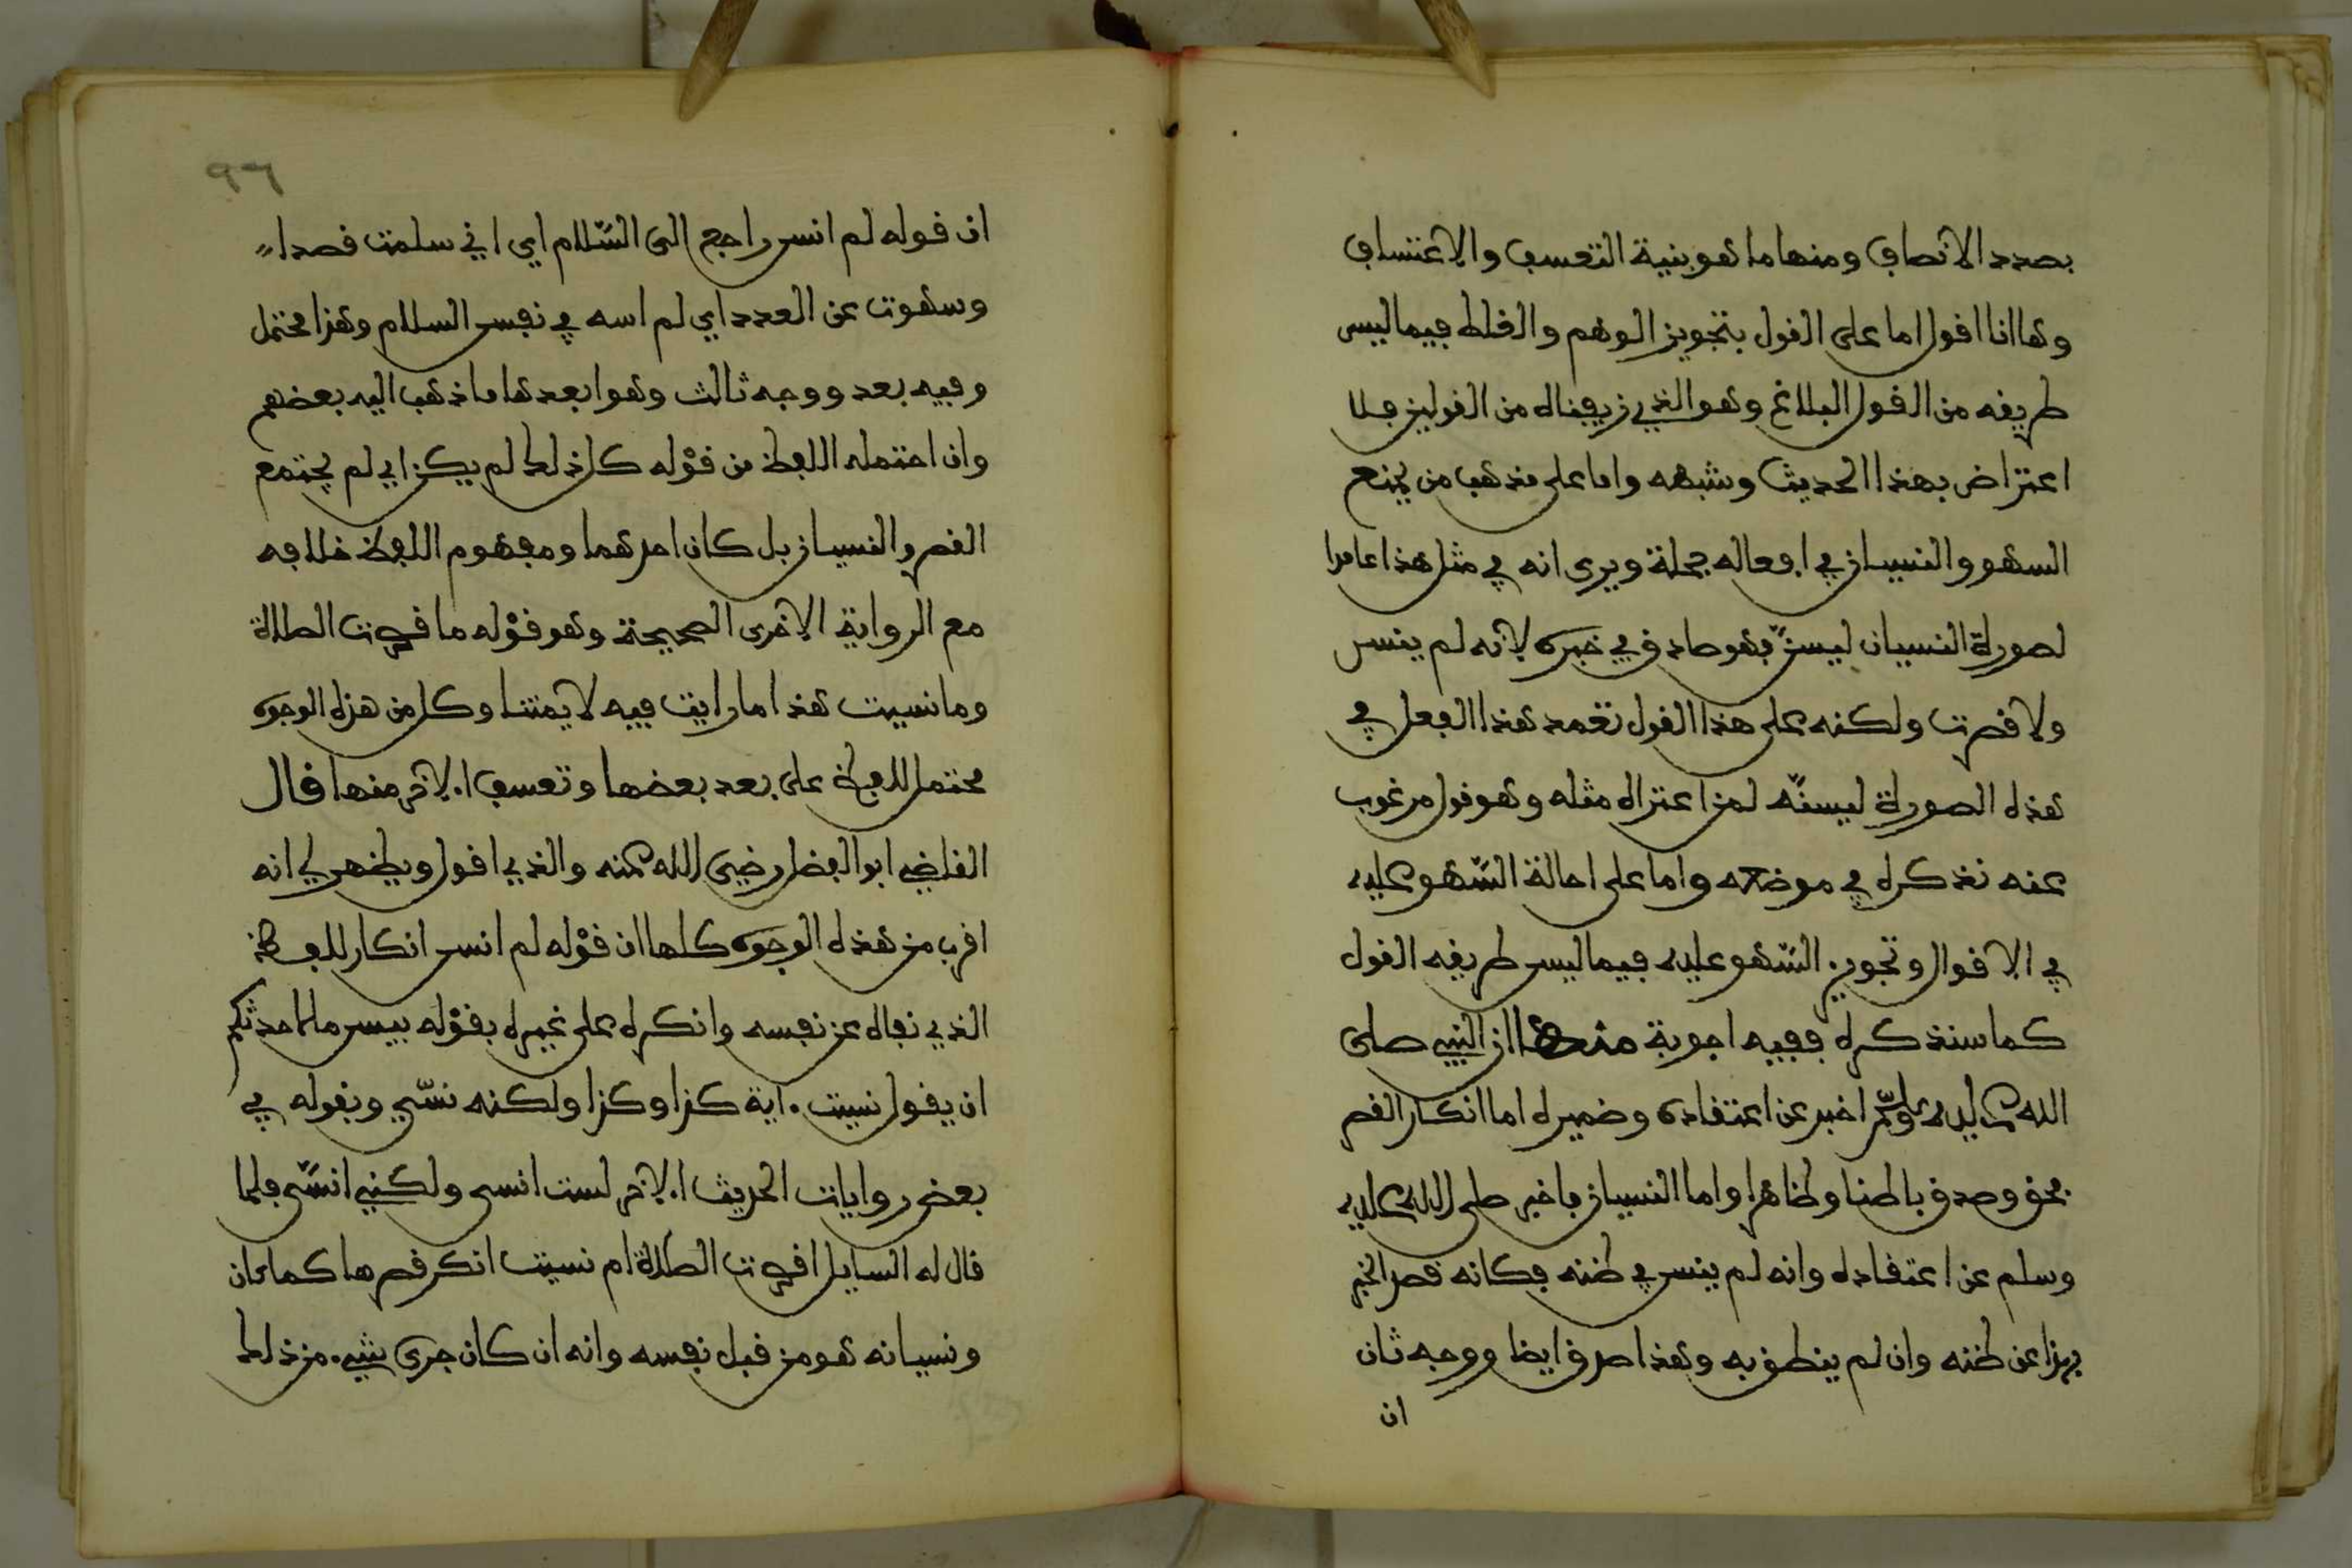 بصدد الانصاف ومنها ما هو بنية التعسف والاعتساف
وها انا اقول اما على القول بتجويز الوهم والغلط فيما ليس
طريقه من القول البلاغ وهو الذي زيفناه من القولين فلا
اعتراض بهذا الحديث وشبهه واما على مذهب من يمنع
السهو والنسيان في افعاله جملة ويرى انه في مثل هذا عامدا
لصورة النسيان ليسن فهو صادق في خبره لانه لم ينس
ولا قصرت ولكنه على هذا القول تعمد هذا الفعل في
هذه الصورة ليسنه لمن اعتراه مثله وهو قول مرغوب
عنه نذكره في موضعه واما على احالة السهو عليه
في الاقوال وتجويز السهو عليه فيما ليس طريقه القول
كما سنذكره ففيه اجوبة منها ان النبي صلى
الله عليه وسلم اخبر عن اعتقاده وضميره اما انكار القصر
فحق وصدق باطنا وظاهرا واما النسيان فاخبر صلى الله عليه
وسلم عن اعتقاده وانه لم ينس في ظنه فكانه قصد الخبر
بهذا عن ظنه وان لم ينطق به وهذا صدق ايضا ووجه ثان
ان
٩٦
ان قوله لم انس راجع الى السلام اي اني سلمت قصدا
وسهوت عن العدد اي لم اسه في نفس السلام وهذا محتمل
وفيه بعد ووجه ثالث وهو ابعدها ما ذهب اليه بعضهم
وان احتمله اللفظ من قوله كل ذلك لم يكن اي لم يجتمع
القصر والنسيان بل كان احدهما ومفهوم اللفظ خلافه
مع الرواية الاخرى الصحيحة وهو قوله ما قصرت الصلاة
وما نسيت هذا ما رايت فيه لايمتنا وكل من هذه الوجوه
محتمل للفظ على بعد بعضها وتعسف الاخر منها قال
القاضي ابو الفضل رضي الله عنه والذي اقول ويظهر لي انه
اقرب من هذه الوجوه كلها ان قوله لم انس انكار للفظ
الذي نفاه عن نفسه وانكره على غيره بقوله بيس ما لاحدكم
ان يقول نسيت اية كذا وكذا ولكنه نسي وبقوله في
بعض روايات الحديث الاخر لست انسى ولكني انسى فلما
قال له السايل اقصرت الصلاة ام نسيت انكر قصرها كما كان
ونسيانه هو من قبل نفسه وانه ان كان جرى شيء من ذلك